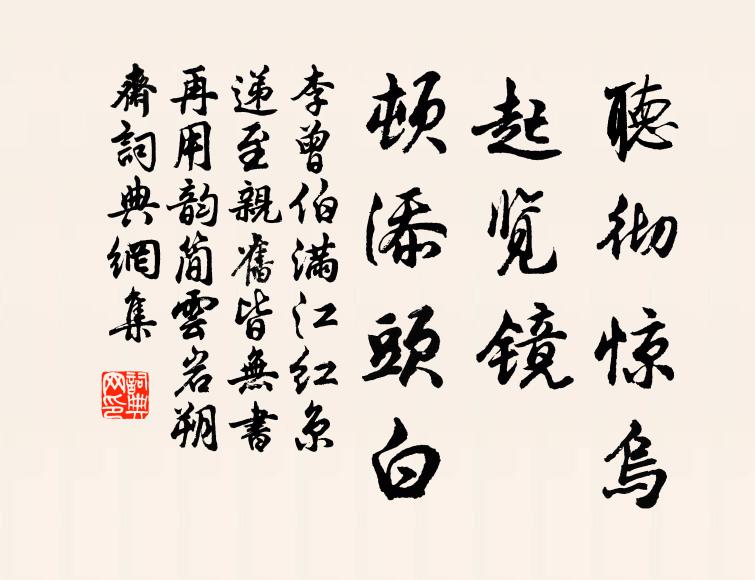 聽彻惊烏
起览镜
頓添頭白
李曾伯满江红京
递至親舊皆無書
再用韵简雲岩朔
齋詞典網集
詞典网印